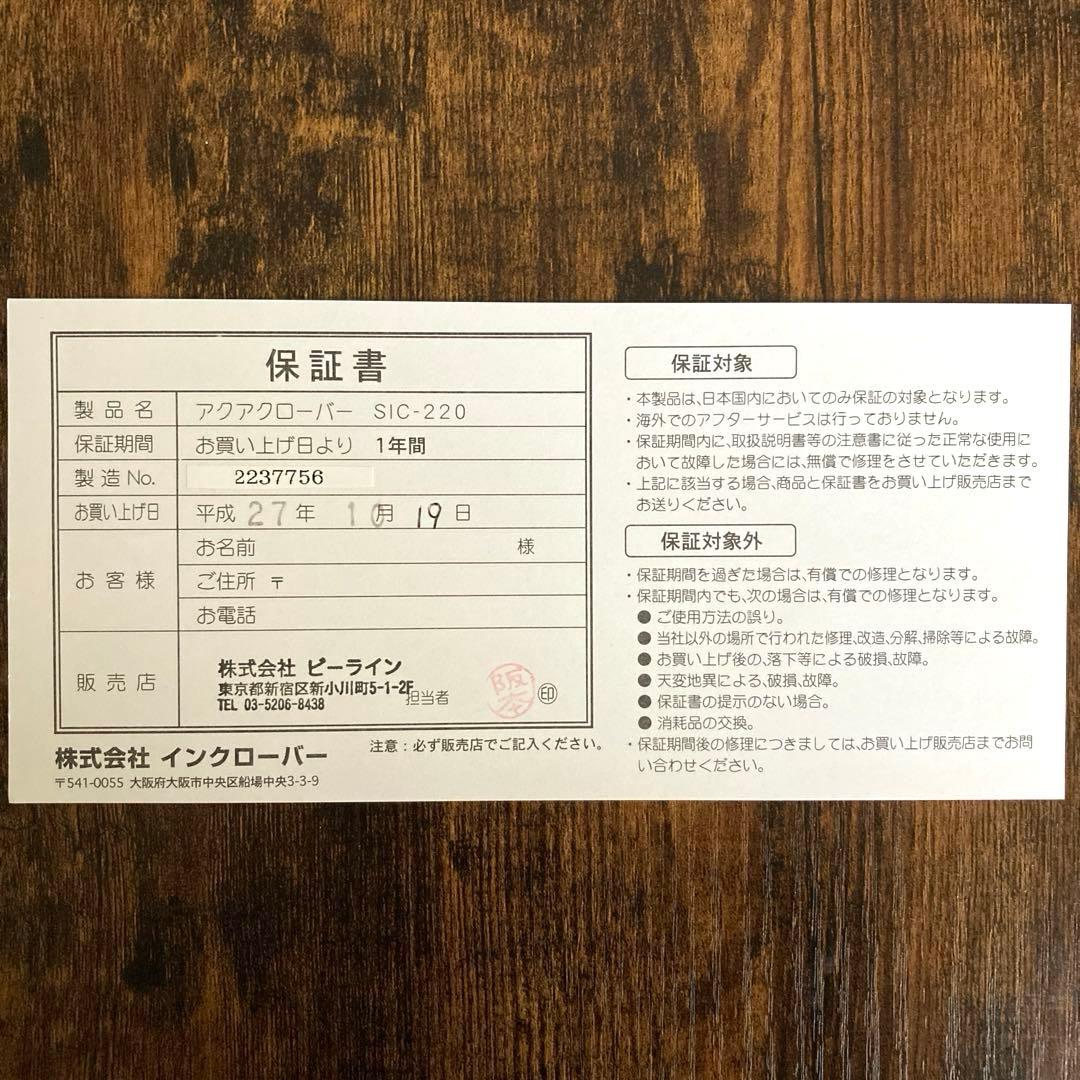 保証書
製品名 アクアクローバー SIC-220
保証期間 お買い上げ日より 1年間
製造No. 2237756
お買い上げ日 平成 27年 10月 19日
お客様
お名前 様
ご住所 〒
お電話
販売店
株式会社 ビーライン
東京都新宿区新小川町5-1-2F
TEL 03-5206-8438
担当者 阪本 印
株式会社 インクローバー
〒541-0055 大阪府大阪市中央区船場中央3-3-9
注意:必ず販売店でご記入ください。
保証対象
・本製品は、日本国内においてのみ保証の対象となります。
・海外でのアフターサービスは行っておりません。
・保証期間内に、取扱説明書等の注意書に従った正常な使用に
おいて故障した場合には、無償で修理をさせていただきます。
・上記に該当する場合、商品と保証書をお買い上げ販売店まで
お送りください。
保証対象外
・保証期間を過ぎた場合は、有償での修理となります。
・保証期間内でも、次の場合は、有償での修理となります。
●ご使用方法の誤り。
●当社以外の場所で行われた修理、改造、分解、掃除等による故障。
●お買い上げ後の、落下等による破損、故障。
●天変地異による、破損、故障。
●保証書の提示のない場合。
●消耗品の交換。
・保証期間後の修理につきましては、お買い上げ販売店までお問
い合わせください。